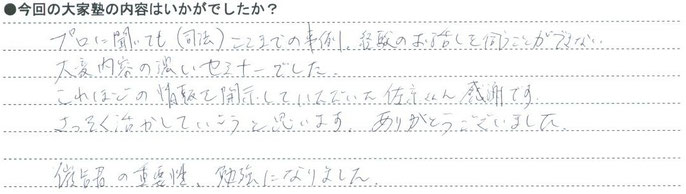 ●今回の大家塾の内容はいかがでしたか?
プロに聞いても(司法)ここまでの事例、経験のお話しを伺うことができない
大変内容の濃いセミナーでした。
これほどの情報を開示していただいた佐々木さん感謝です。
さっそく活かしていこうと思います。ありがとうございました。
催告書の重要性、勉強になりました。